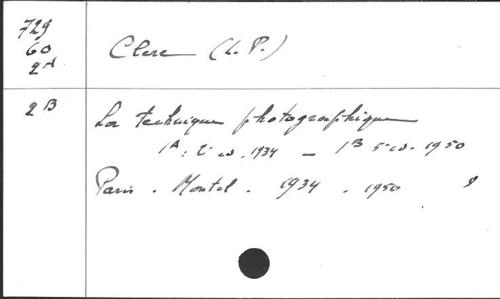 729
60
2A
Clerc (L. P.)
2B
La technique photographique
1A : 2e ed. 1934 — 1B 5e ed. 1950
Paris . Montel . 1934 . 1950